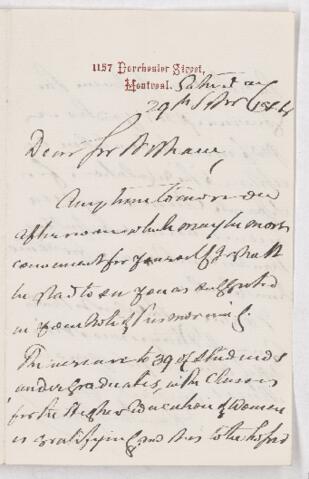 1157 Dorchester Street,
Montreal. Saturday
29th
Dear Sir
Any time tomorrow
afternoon which may be most
convenient for yourself I shall
be glad to see you as suggested
in your note of this morning.
The increase to 39 of students
undergraduates, in the Classes
for the Higher Education of Women
is gratifying and it is to be hoped